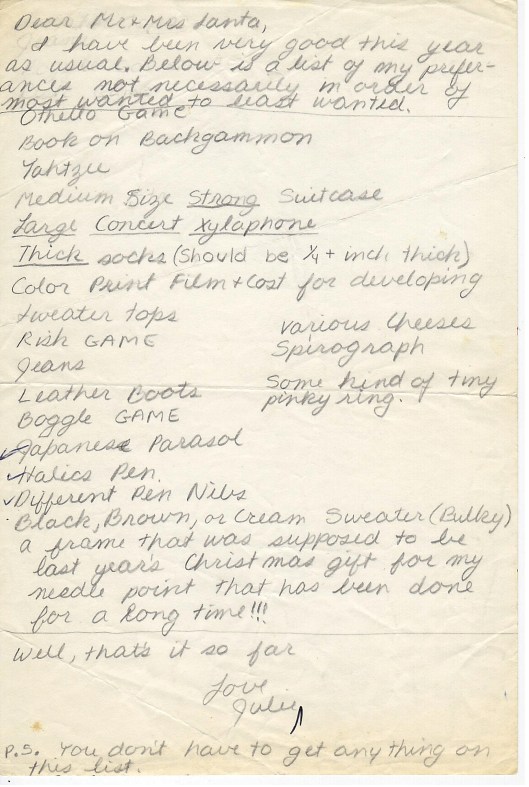 Dear Mr + Mrs Santa,
I have been very good this year
as usual. Below is a list of my prefer-
ances not necessarily in order of
most wanted to least wanted.
Othello Game
Book on Backgammon
Yahtzee
Medium Size Strong Suitcase
Large Concert Xylaphone
Thick socks (should be 1/4 + inch thick)
Color Print Film + Cost for developing
sweater tops
Risk GAME
Jeans
Leather Boots
Boggle GAME
Various Cheeses
Spirograph
Some kind of tiny
pinky ring.
Japanese Parasol
Italics Pen.
Different Pen Nibs
Black, Brown, or Cream Sweater (Bulky)
a frame that was supposed to be
last year's Christmas gift for my
needle point that has been done
for a long time!!!
Well, that's it so far
Love
Julie
P.S. You don't have to get anything on
this list.